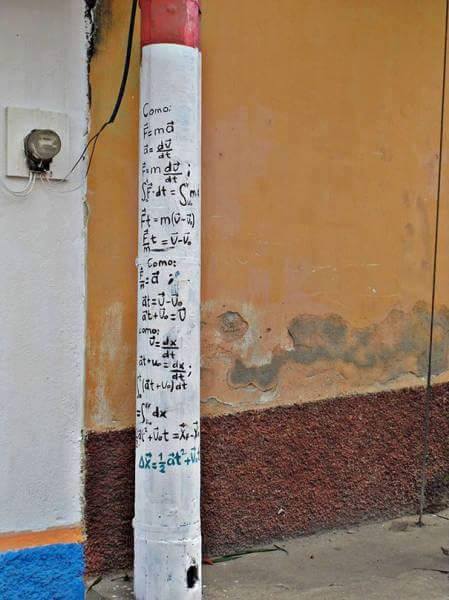 Como:
F⃗=ma⃗
a⃗=dv⃗/dt
F⃗=m dv⃗/dt ;
∫F⃗·dt = ∫m
F⃗t = m(v⃗-v⃗₀)
F⃗/m t = v⃗-v⃗₀
Como:
F⃗/m = a⃗ ;
a⃗t = v⃗-v⃗₀
a⃗t+v⃗₀ = v⃗
Como:
v⃗=dx⃗/dt
a⃗t+v₀ = dx⃗/dt ;
∫(a⃗t+v₀)dt
=∫dx
at²+v⃗₀t = x⃗f-x⃗
Δx⃗=½a⃗t²+v⃗₀t